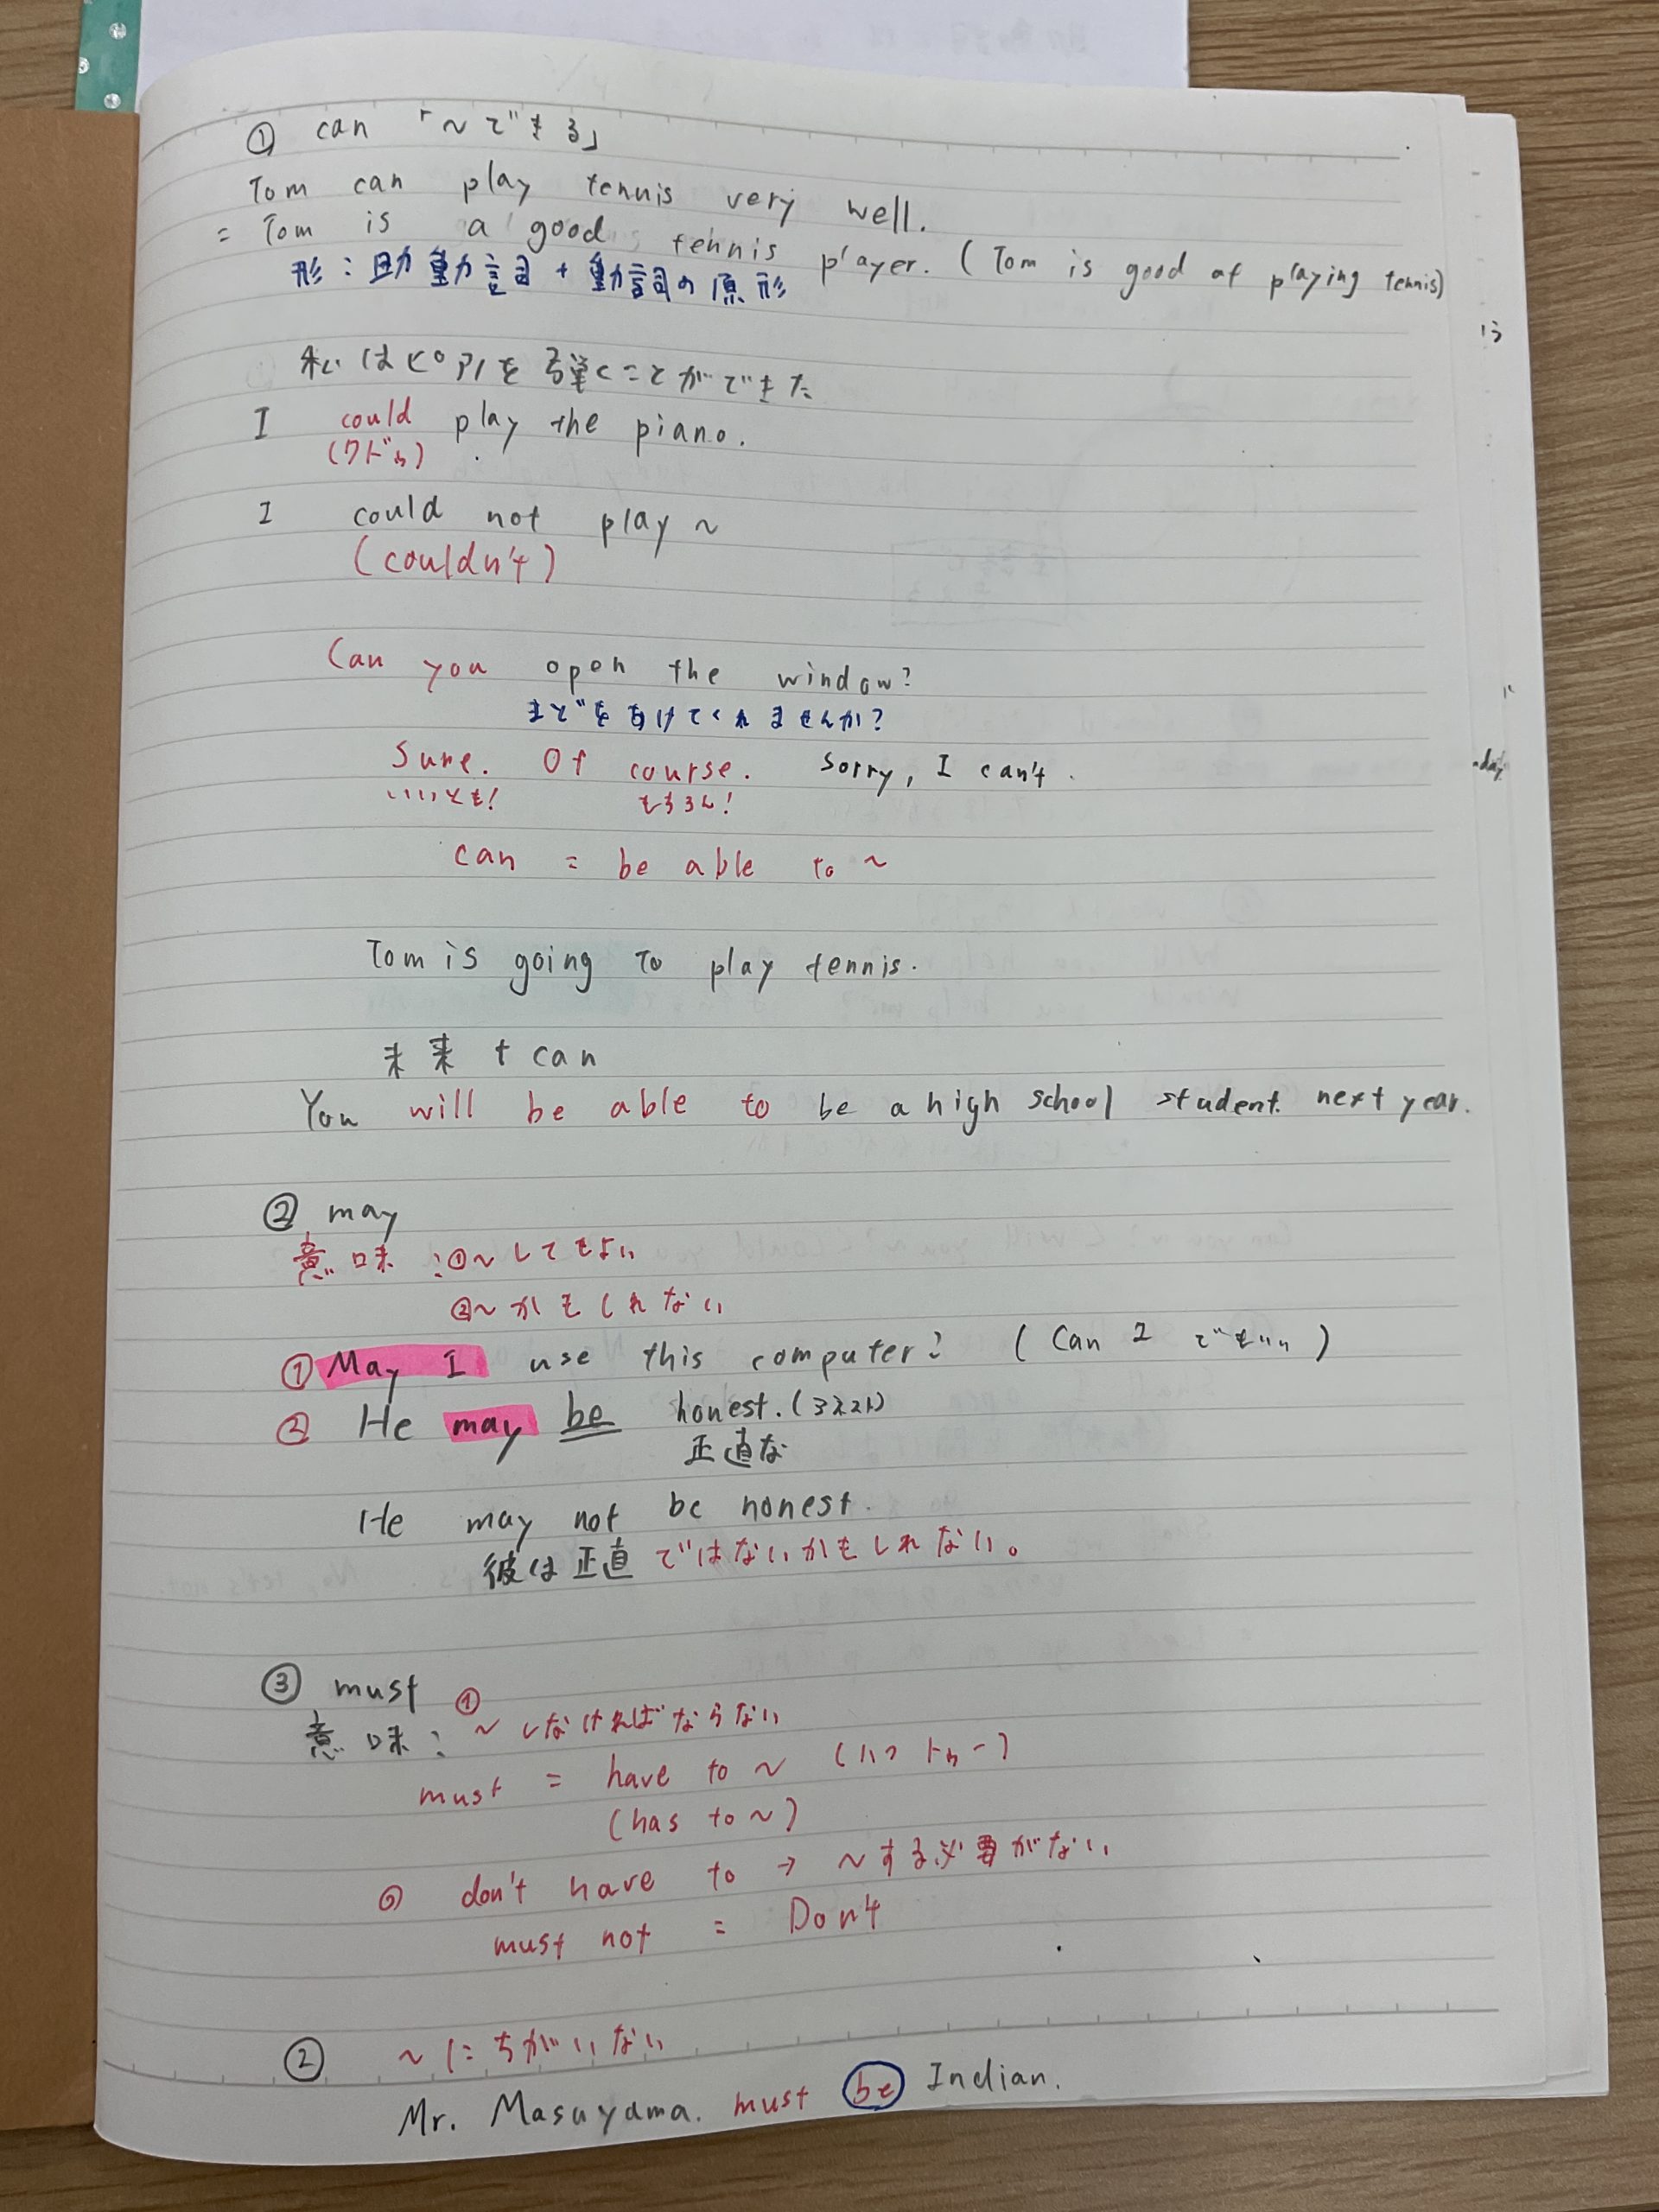 ① can 「～できる」
Tom can play tennis very well.
= Tom is a good tennis player. (Tom is good at playing tennis)
形：助動詞 + 動詞の原形
私はピアノを弾くことができた
I could play the piano.
(クドゥ)
I could not play ～
(couldn't)
Can you open the window?
まどを開けてくれませんか?
Sure. Of course. Sorry, I can't.
いいとも! もちろん!
can = be able to ～
Tom is going to play tennis.
未来 + can
You will be able to be a high school student next year.
② may
意味：①～してもよい
②～かもしれない
① May I use this computer? (Can I でもいい)
② He may be honest. (オネスト)
正直な
He may not be honest.
彼は正直ではないかもしれない。
③ must
意味：①～しなければならない
must = have to ～ (ハフトゥー)
(has to ～)
◎ don't have to → ～する必要がない
must not = Don't
② ～にちがいない
Mr. Masuyama. must be Indian.